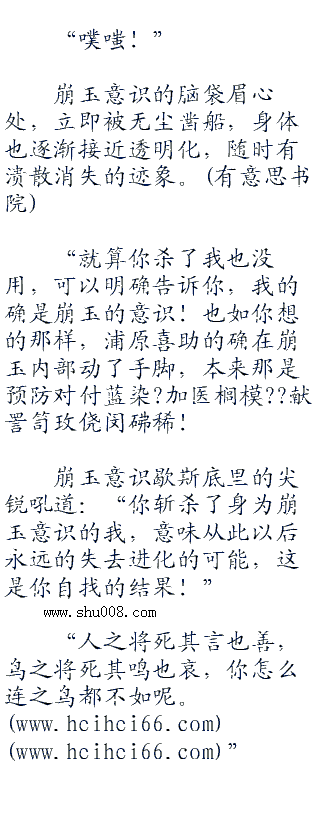 “噗嗤！”
崩玉意识的脑袋眉心
处，立即被无尘凿船，身体
也逐渐接近透明化，随时有
溃散消失的迹象。(有意思书
院)
“就算你杀了我也没
用，可以明确告诉你，我的
确是崩玉的意识！也如你想
的那样，浦原喜助的确在崩
玉内部动了手脚，本来那是
预防对付蓝染?加医榈模??献
詈笥玫侥闵砩稀！
崩玉意识歇斯底里的尖
锐吼道：“你斩杀了身为崩
玉意识的我，意味从此以后
永远的失去进化的可能，这
是你自找的结果！”
www.shu008.com
“人之将死其言也善，
鸟之将死其鸣也哀，你怎么
连之鸟都不如呢。
(www.hcihci66.com)
(www.hcihci66.com)”